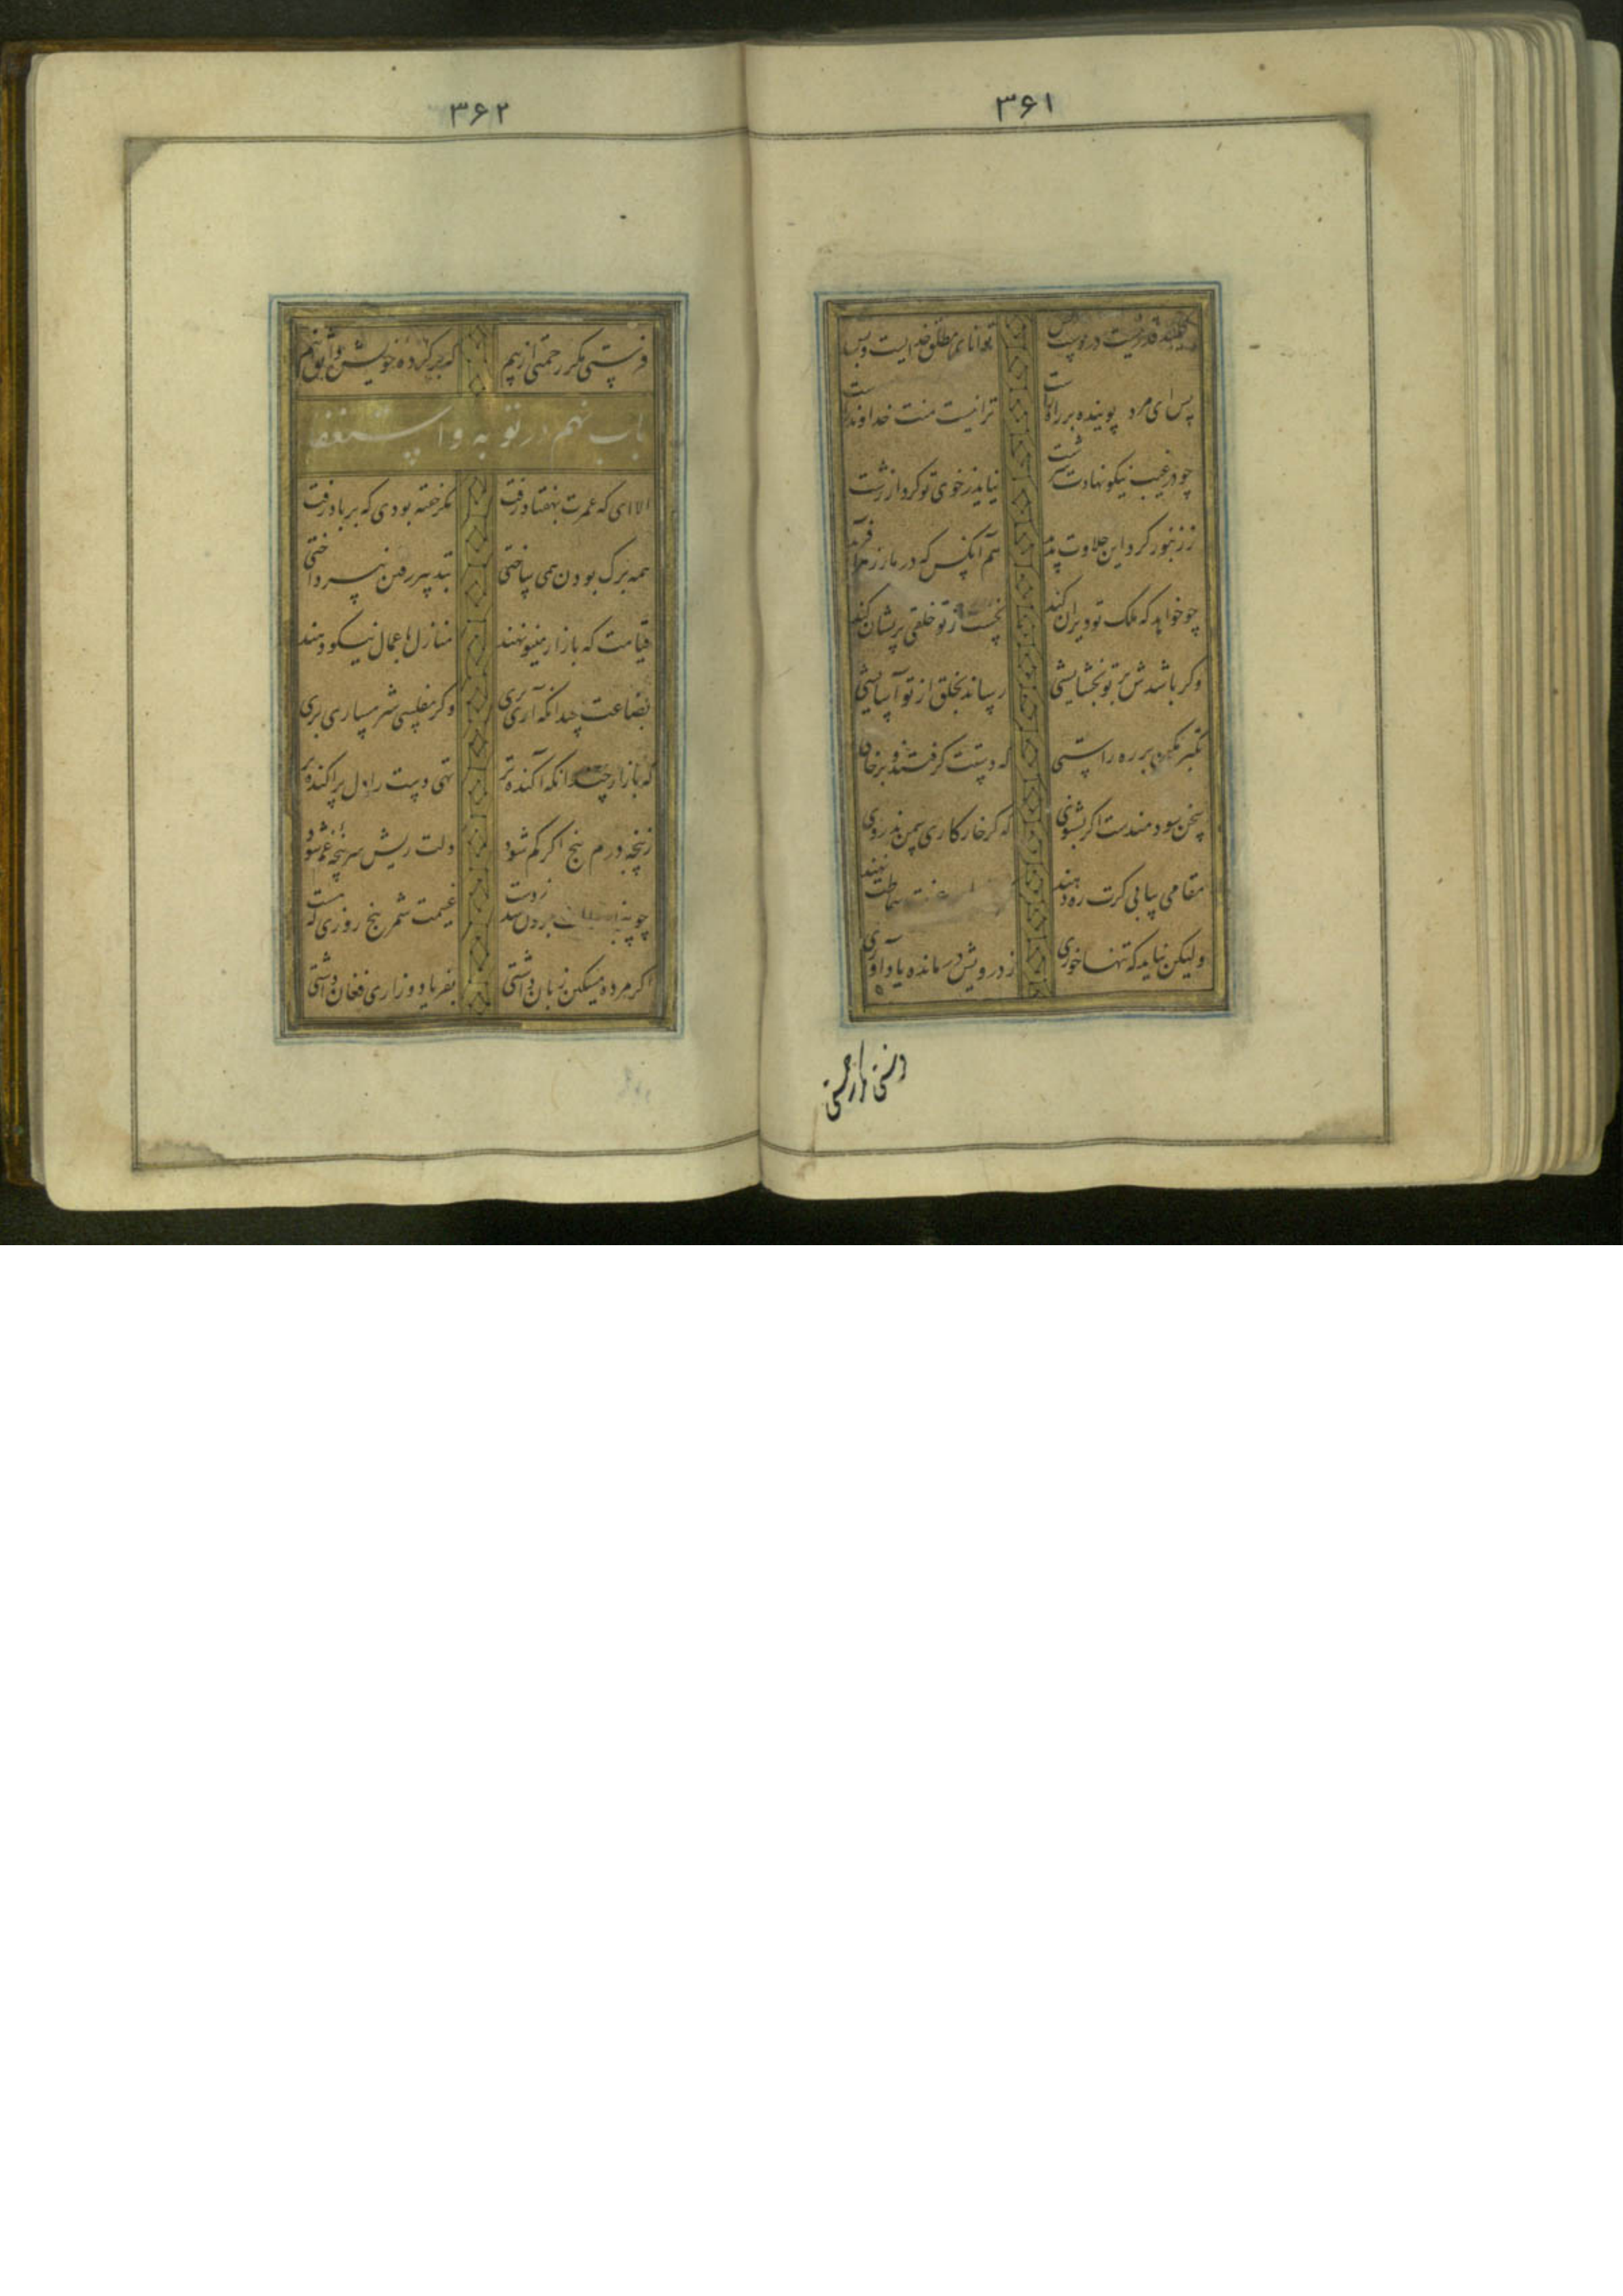 ۳۶۱
کلید قدر نیست در دست کس توانای مطلق خدایست و بس
پس ای مرد پوینده بر راه راست ترا نیست منت خداوند راست
چو در غیب نیکو نهادت سرشت نیاید ز خوی تو کردار زشت
ز زنبور کرد این حلاوت پدید هم آنکس که در مار زهر آفرید
چو خواهد که ملک تو ویران کند نخست از تو خلقی پریشان کند
وگر باشدش بر تو بخشایشی رساند بخلق از تو آسایشی
تکبر مکن بر ره راستی که دستت گرفتند و برخاستی
سخن سودمندست اگر بشنوی که گر خار کاری سمن ندروی
مقامی بیابی گرت ره دهند
ولیکن نباید که تنها خوری ز درویش درمانده یاد آوری
۳۶۲
فرستی مگر رحمتی از پیم که بر کرده خویش واثق نیم
باب نهم در توبه و استغفار
الا ای که عمرت بهفتاد رفت مگر خفته بودی که بر باد رفت
همه برگ بودن همی ساختی بتدبیر رفتن نپرداختی
قیامت که بازار مینو نهند منازل باعمال نیکو دهند
بضاعت چندانکه آری بری وگر مفلسی شرمساری بری
که بازار چندانکه آکنده تر تهی دست را دل پراکنده تر
ز پنجه درم پنج اگر کم شود دلت ریش سرپنجه غم شود
چو پنجاه سالت برون شد ز دست غنیمت شمر پنج روزی که هست
اگر مرده مسکین زبان داشتی بفریاد و زاری فغان داشتی